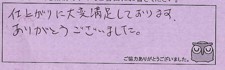 仕上がりに大変満足しております。
ありがとうございました。
ご協力ありがとうございました。